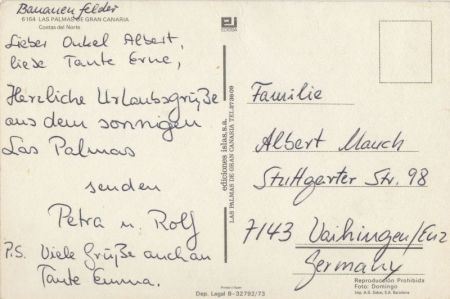 Bananenfelder
6164 LAS PALMAS DE GRAN CANARIA
Costas del Norte
Lieber Onkel Albert,
liebe Tante Erne,
Herzliche Urlaubsgrüße
aus dem sonnigen
Las Palmas
senden
Petra u. Rolf
P.S. Viele Grüße auch an
Tante Emma.
ediciones islas, s.a.
LAS PALMAS DE GRAN CANARIA TEL. 273609
Dep. Legal B-32792/73
Familie
Albert Mauch
Stuttgarter Str. 98
7143 Vaihingen/Enz
Germany
Reproducción Prohibida
Foto: Domingo